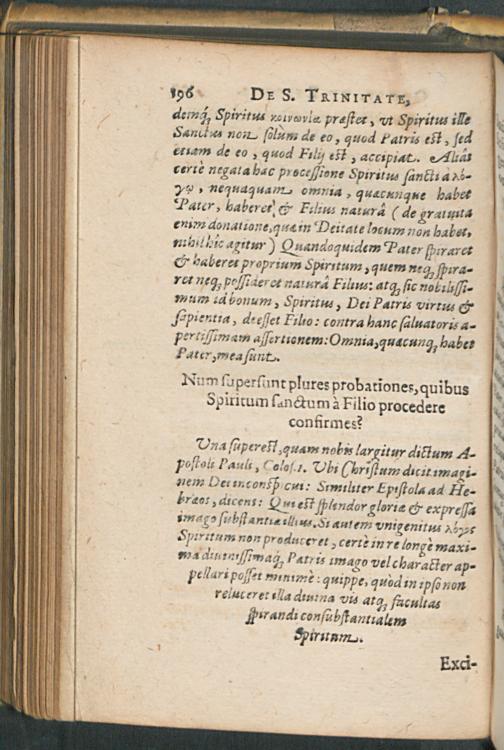 196 DE S. TRINITATE,
demq́; Spiritus κοινωνία præstet, vt Spiritus ille
Sanctus non solùm de eo, quod Patris est, sed
etiam de eo, quod Filij est, accipiat. Aliâs
certè negata hac processione Spiritus sancti à λό-
γῳ, nequaquam omnia, quæcunque habet
Pater, haberet & Filius naturâ (de gratuita
enim donatione, quæ in Deitate locum non habet,
nihil hîc agitur) Quandoquidem Pater spiraret
& haberet proprium Spiritum, quem neq; spira-
ret neq; possideret naturâ Filius: atq; sic nobilissi-
mum id bonum, Spiritus, Dei Patris virtus &
sapientia, deesset Filio: contra hanc saluatoris a-
pertissimam assertionem: Omnia, quæcunq; habet
Pater, mea sunt.
Num supersunt plures probationes, quibus
Spiritum sanctum à Filio procedere
confirmes?
Una superest, quam nobis largitur dictum A-
postoli Pauli, Colos. 1. Ubi Christum dicit imagi-
nem Dei inconspicui: Similiter Epistola ad He-
bræos, dicens: Qui est splendor gloriæ & expressa
imago substantiæ illius. Si autem vnigenitus λόγος
Spiritum non produceret, certè in re longè maxi-
ma diuinissimaq́; Patris imago vel character ap-
pellari posset minimè: quippe, quòd in ipso non
reluceret illa diuina vis atq; facultas
spirandi consubstantialem
Spiritum.
Exci-